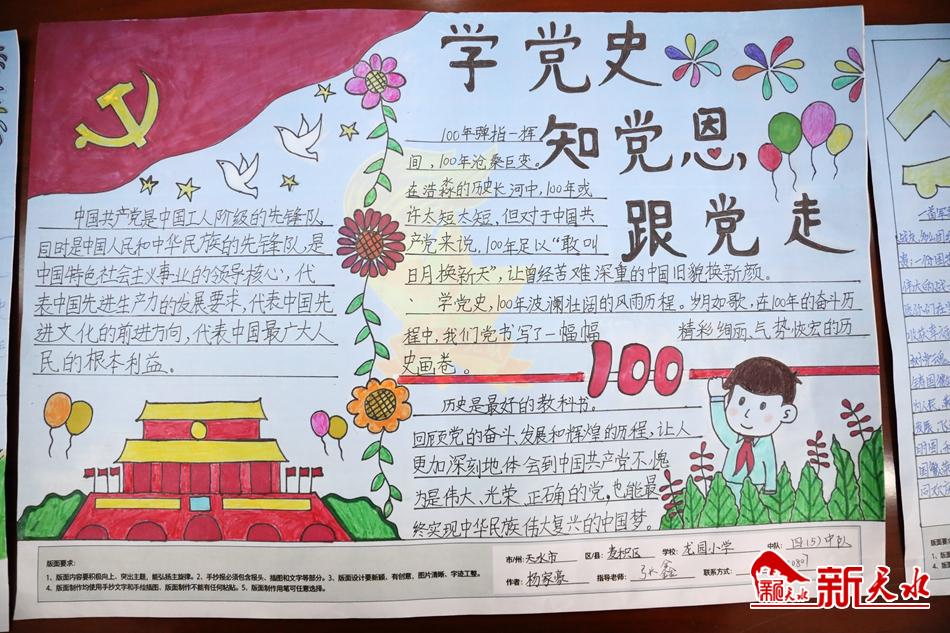 学党史
知党恩,
跟党走
中国共产党是中国工人阶级的先锋队,
同时是中国人民和中华民族的先锋队,是
中国特色社会主义事业的领导核心,代
表中国先进生产力的发展要求,代表中国先
进文化的前进方向,代表中国最广大人
民的根本利益。
100年弹指一挥
间,100年沧桑巨变。
在浩淼的历史长河中,100年或
许太短太短,但对于中国共
产党来说,100年足以“敢叫
日月换新天”,让曾经苦难深重的中国旧貌换新颜。
学党史,100年波澜壮阔的风雨历程。岁月如歌,在100年的奋斗历
程中,我们党书写了一幅幅 精彩绚丽、气势恢宏的历
史画卷。
100
历史是最好的教科书。
回顾党的奋斗、发展和辉煌的历程,让人
更加深刻地体会到中国共产党不愧
为是伟大、光荣、正确的党,也能最
终实现中华民族伟大复兴的中国梦。
版面要求:
1、版面内容要积极向上,突出主题,能弘扬主旋律。2、手抄报必须包含报头、插图和文字等部分。3、版面设计要新颖,有创意,图片清晰、字迹工整。
4、版面制作均使用手抄文字和手绘插图,版面制作不能有任何粘贴。5、版面制作用笔可任意选择。
市/州:天水市 区/县:麦积区 学校:龙园小学 中队:四(5)中队
作者:杨家豪 指导老师:张鑫 联系方式:
新天水